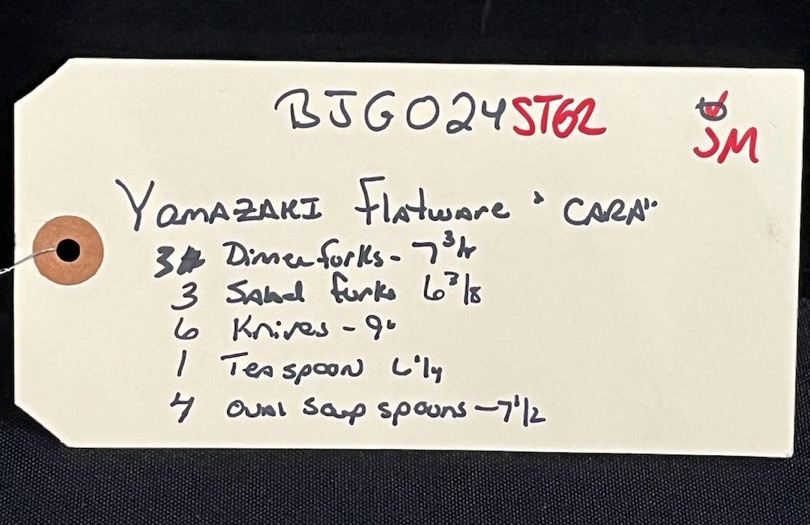 BJG024STG2
JM
YamAZAKI Flatware "CARA"
3 Dinner forks - 7
3 Salad forks 6 3/8
6 Knives - 9"
1 Teaspoon 6 1/4
4 oval soup spoons - 7 1/2